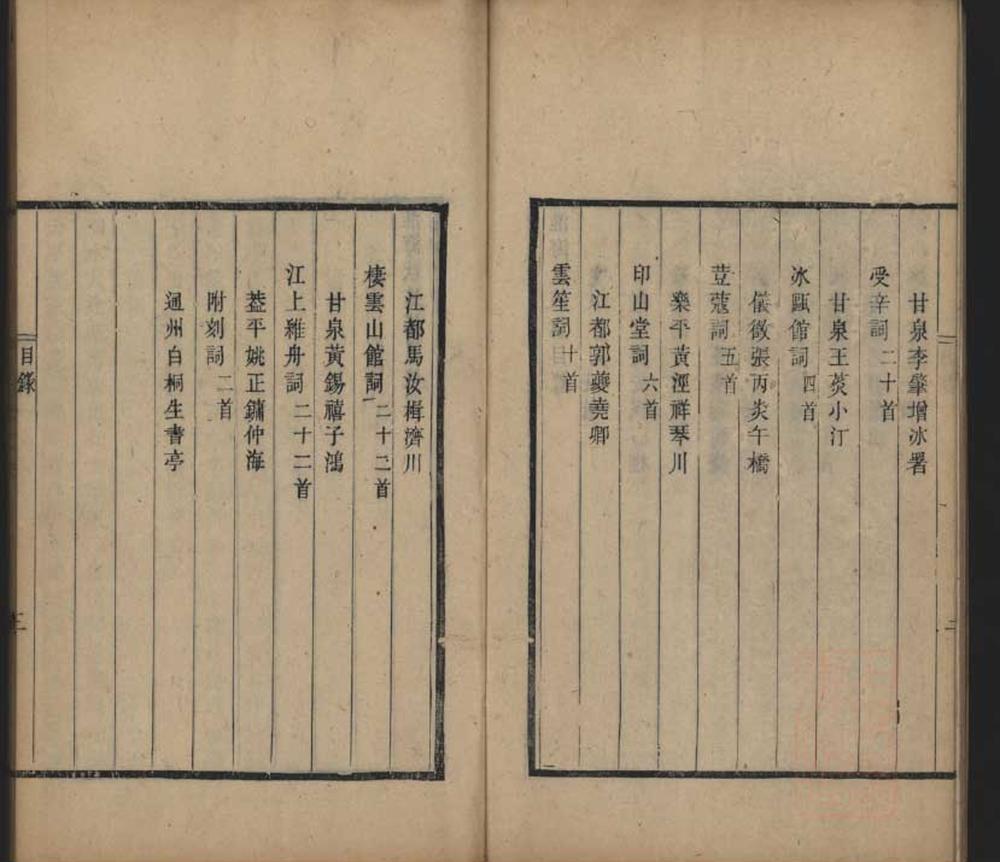 甘泉李肇增冰署
受辛詞二十首
甘泉王菼小汀
冰甌館詞四首
儀徵張丙炎午橋
荳蔻詞五首
樂平黃涇祥琴川
印山堂詞六首
江都郭夔堯卿
雲笙詞十首
二
江都馬汝楫濟川
棲雲山館詞二十二首
甘泉黃錫禧子鴻
江上維舟詞二十二首
葢平姚正鏞仲海
附刻詞二首
通州白桐生書亭
目錄
三